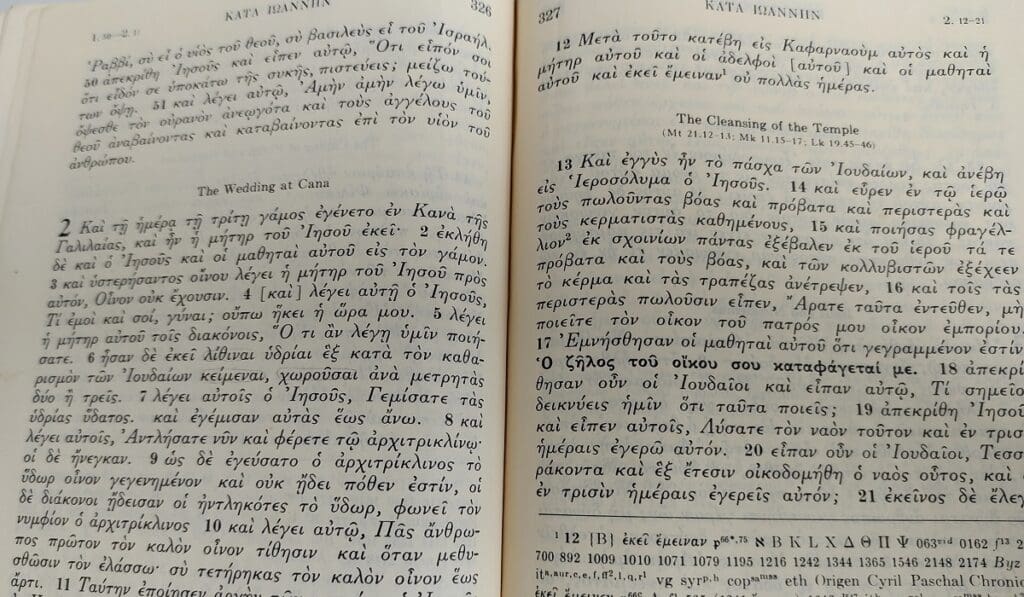 ΚΑΤΑ ΙΩΑΝΝΗΝ
326
1. 50—2. 11
Ῥαββί, σὺ εἶ ὁ υἱὸς τοῦ θεοῦ, σὺ βασιλεὺς εἶ τοῦ Ἰσραήλ.
50 ἀπεκρίθη Ἰησοῦς καὶ εἶπεν αὐτῷ, Ὅτι εἶπόν σοι
ὅτι εἶδόν σε ὑποκάτω τῆς συκῆς, πιστεύεις; μείζω τού-
των ὄψῃ. 51 καὶ λέγει αὐτῷ, Ἀμὴν ἀμὴν λέγω ὑμῖν,
ὄψεσθε τὸν οὐρανὸν ἀνεῳγότα καὶ τοὺς ἀγγέλους τοῦ
θεοῦ ἀναβαίνοντας καὶ καταβαίνοντας ἐπὶ τὸν υἱὸν τοῦ
ἀνθρώπου.
The Wedding at Cana
2 Καὶ τῇ ἡμέρᾳ τῇ τρίτῃ γάμος ἐγένετο ἐν Κανὰ τῆς
Γαλιλαίας, καὶ ἦν ἡ μήτηρ τοῦ Ἰησοῦ ἐκεῖ· 2 ἐκλήθη
δὲ καὶ ὁ Ἰησοῦς καὶ οἱ μαθηταὶ αὐτοῦ εἰς τὸν γάμον.
3 καὶ ὑστερήσαντος οἴνου λέγει ἡ μήτηρ τοῦ Ἰησοῦ πρὸς
αὐτόν, Οἶνον οὐκ ἔχουσιν. 4 [καὶ] λέγει αὐτῇ ὁ Ἰησοῦς,
Τί ἐμοὶ καὶ σοί, γύναι; οὔπω ἥκει ἡ ὥρα μου. 5 λέγει
ἡ μήτηρ αὐτοῦ τοῖς διακόνοις, Ὅ τι ἂν λέγῃ ὑμῖν ποιή-
σατε. 6 ἦσαν δὲ ἐκεῖ λίθιναι ὑδρίαι ἓξ κατὰ τὸν καθα-
ρισμὸν τῶν Ἰουδαίων κείμεναι, χωροῦσαι ἀνὰ μετρητὰς
δύο ἢ τρεῖς. 7 λέγει αὐτοῖς ὁ Ἰησοῦς, Γεμίσατε τὰς
ὑδρίας ὕδατος. καὶ ἐγέμισαν αὐτὰς ἕως ἄνω. 8 καὶ
λέγει αὐτοῖς, Ἀντλήσατε νῦν καὶ φέρετε τῷ ἀρχιτρικλίνῳ·
οἱ δὲ ἤνεγκαν. 9 ὡς δὲ ἐγεύσατο ὁ ἀρχιτρίκλινος τὸ
ὕδωρ οἶνον γεγενημένον καὶ οὐκ ᾔδει πόθεν ἐστίν, οἱ
δὲ διάκονοι ᾔδεισαν οἱ ἠντληκότες τὸ ὕδωρ, φωνεῖ τὸν
νυμφίον ὁ ἀρχιτρίκλινος 10 καὶ λέγει αὐτῷ, Πᾶς ἄνθρω-
πος πρῶτον τὸν καλὸν οἶνον τίθησιν καὶ ὅταν μεθυ-
σθῶσιν τὸν ἐλάσσω· σὺ τετήρηκας τὸν καλὸν οἶνον ἕως
ἄρτι. 11 Ταύτην ἐποίησεν ἀρχὴν
327
ΚΑΤΑ ΙΩΑΝΝΗΝ
2. 12–21
12 Μετὰ τοῦτο κατέβη εἰς Καφαρναοὺμ αὐτὸς καὶ ἡ
μήτηρ αὐτοῦ καὶ οἱ ἀδελφοὶ [αὐτοῦ] καὶ οἱ μαθηταὶ
αὐτοῦ καὶ ἐκεῖ ἔμειναν¹ οὐ πολλὰς ἡμέρας.
The Cleansing of the Temple
(Mt 21.12–13; Mk 11.15–17; Lk 19.45–46)
13 Καὶ ἐγγὺς ἦν τὸ πάσχα τῶν Ἰουδαίων, καὶ ἀνέβη
εἰς Ἱεροσόλυμα ὁ Ἰησοῦς. 14 καὶ εὗρεν ἐν τῷ ἱερῷ
τοὺς πωλοῦντας βόας καὶ πρόβατα καὶ περιστερὰς καὶ
τοὺς κερματιστὰς καθημένους, 15 καὶ ποιήσας φραγέλ-
λιον² ἐκ σχοινίων πάντας ἐξέβαλεν ἐκ τοῦ ἱεροῦ τά τε
πρόβατα καὶ τοὺς βόας, καὶ τῶν κολλυβιστῶν ἐξέχεεν
τὸ κέρμα καὶ τὰς τραπέζας ἀνέτρεψεν, 16 καὶ τοῖς τὰς
περιστερὰς πωλοῦσιν εἶπεν, Ἄρατε ταῦτα ἐντεῦθεν, μὴ
ποιεῖτε τὸν οἶκον τοῦ πατρός μου οἶκον ἐμπορίου.
17 Ἐμνήσθησαν οἱ μαθηταὶ αὐτοῦ ὅτι γεγραμμένον ἐστίν
Ὁ ζῆλος τοῦ οἴκου σου καταφάγεταί με. 18 ἀπεκρί
θησαν οὖν οἱ Ἰουδαῖοι καὶ εἶπαν αὐτῷ, Τί σημεῖο
δεικνύεις ἡμῖν ὅτι ταῦτα ποιεῖς; 19 ἀπεκρίθη Ἰησοῦ
καὶ εἶπεν αὐτοῖς, Λύσατε τὸν ναὸν τοῦτον καὶ ἐν τρισ
ἡμέραις ἐγερῶ αὐτόν. 20 εἶπαν οὖν οἱ Ἰουδαῖοι, Τεσσ
ράκοντα καὶ ἓξ ἔτεσιν οἰκοδομήθη ὁ ναὸς οὗτος, καὶ
ἐν τρισὶν ἡμέραις ἐγερεῖς αὐτόν; 21 ἐκεῖνος δὲ ἔλεγ
¹ 12 {B} ἐκεῖ ἔμειναν p⁶⁶*,⁷⁵ ℵ B K L X Δ Θ Π Ψ 063ᵛⁱᵈ 0162 f¹³ 2
700 892 1009 1010 1071 1079 1195 1216 1242 1344 1365 1546 2148 2174 Byz
itᵃ,ᵃᵘʳ,ᶜ,ᵉ,ᶠ,ᶠᶠ²,ˡ,q,ʳˡ vg syrᵖ,ʰ copˢᵃᵐˢˢ eth Origen Cyril Paschal Chronic